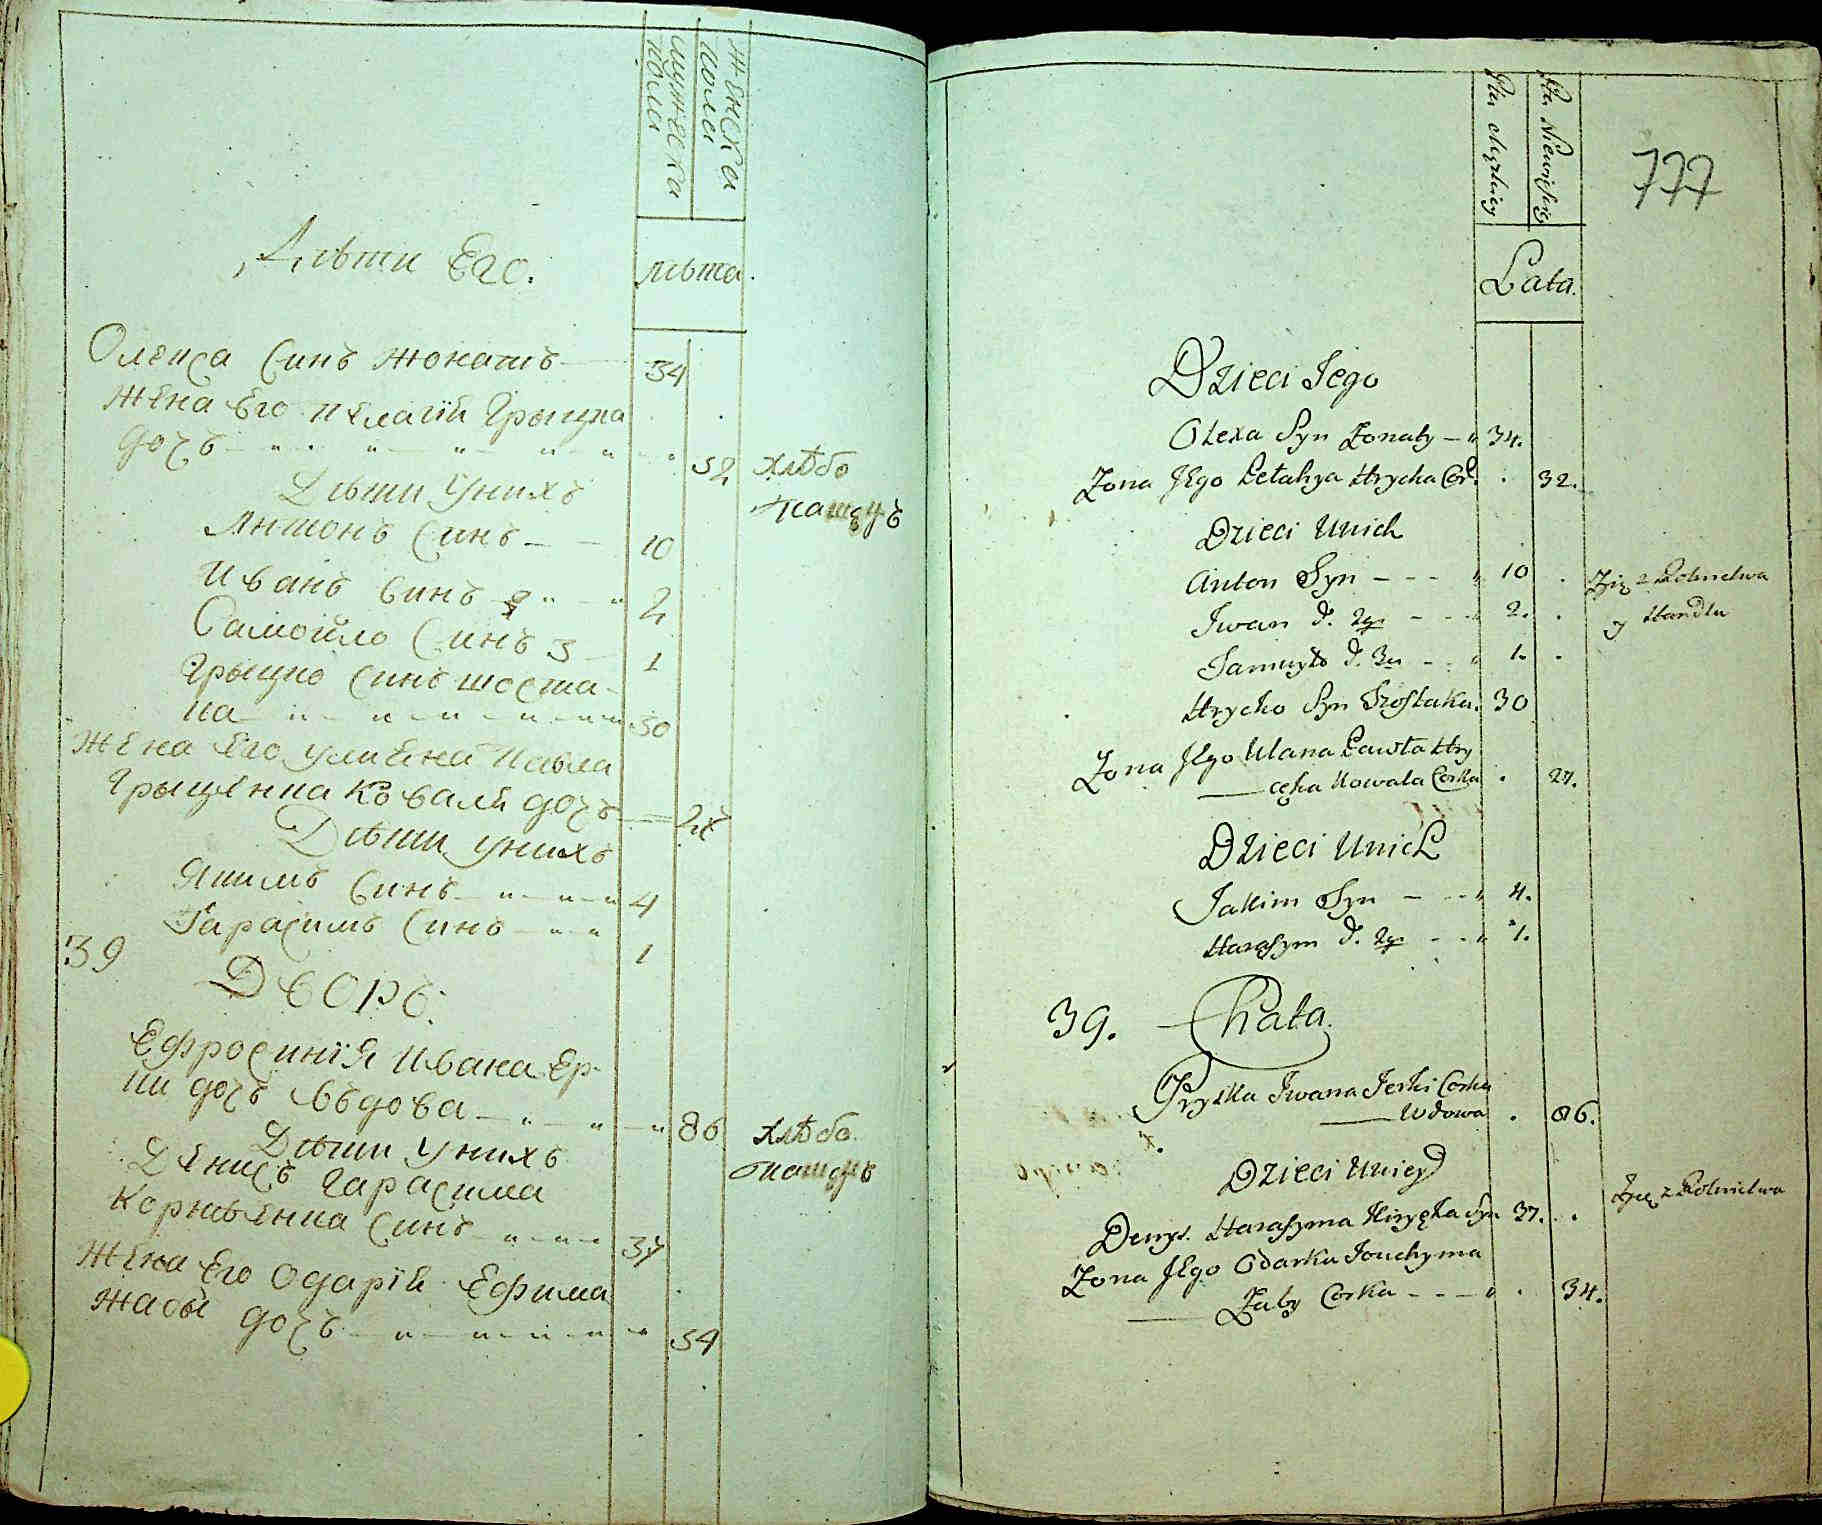 мужеска пола
женска пола
Дѣти Его.
лѣта.
Олекса Синъ жонатъ 34
Жена Его Пелагїя Грыцка
дочъ 32
хлѣбо
пашецъ
Дѣти Унихъ
Антонъ Синъ 10
Иванъ Синъ 2 2
Самойло Синъ 3 1
Грыцко Синъ шоста-
ка 30
Жена Его Улияна Павла
Грыценка Коваля дочъ 27
Дѣти Унихъ
Якимъ Синъ 4
Гарасимъ Синъ 1
39
Дворъ.
Ефросинїя Ивана Ер-
ки дочъ вѣдова 86
хлѣбо
пашецъ
Дѣти Унихъ
Денисъ Гарасима
Синъ 37
Жена Его Одарїя Ефима
Жабы дочъ 34
777
Płci Męzkiey
Płci Niewieściey
Lata.
Dzieci Jego
Olexa Syn Żonaty 34.
Żona Jego Pelahya Hrycka Cor. 32.
Dzieci Unich
Anton Syn 10
Żyią z Rolnictwa
y Handlu
Iwan d. 2gi 2.
Samuyło d. 3ci 1.
Hrycko Syn Szostaka. 30
Żona Jego Ulana Pawła Hry
cęka Kowala Corka 27.
Dzieci Unich
Jakim Syn 4.
Harasym d. 2gi 1.
39. Chata.
Pryska Iwana Jerki Corka
Wdowa 86.
Dzieci Unich
Żyią z Rolnictwa
Denys. Harasyma Syn 37.
Żona Jego Odarka Jouchyma
Żaby Corka 34.